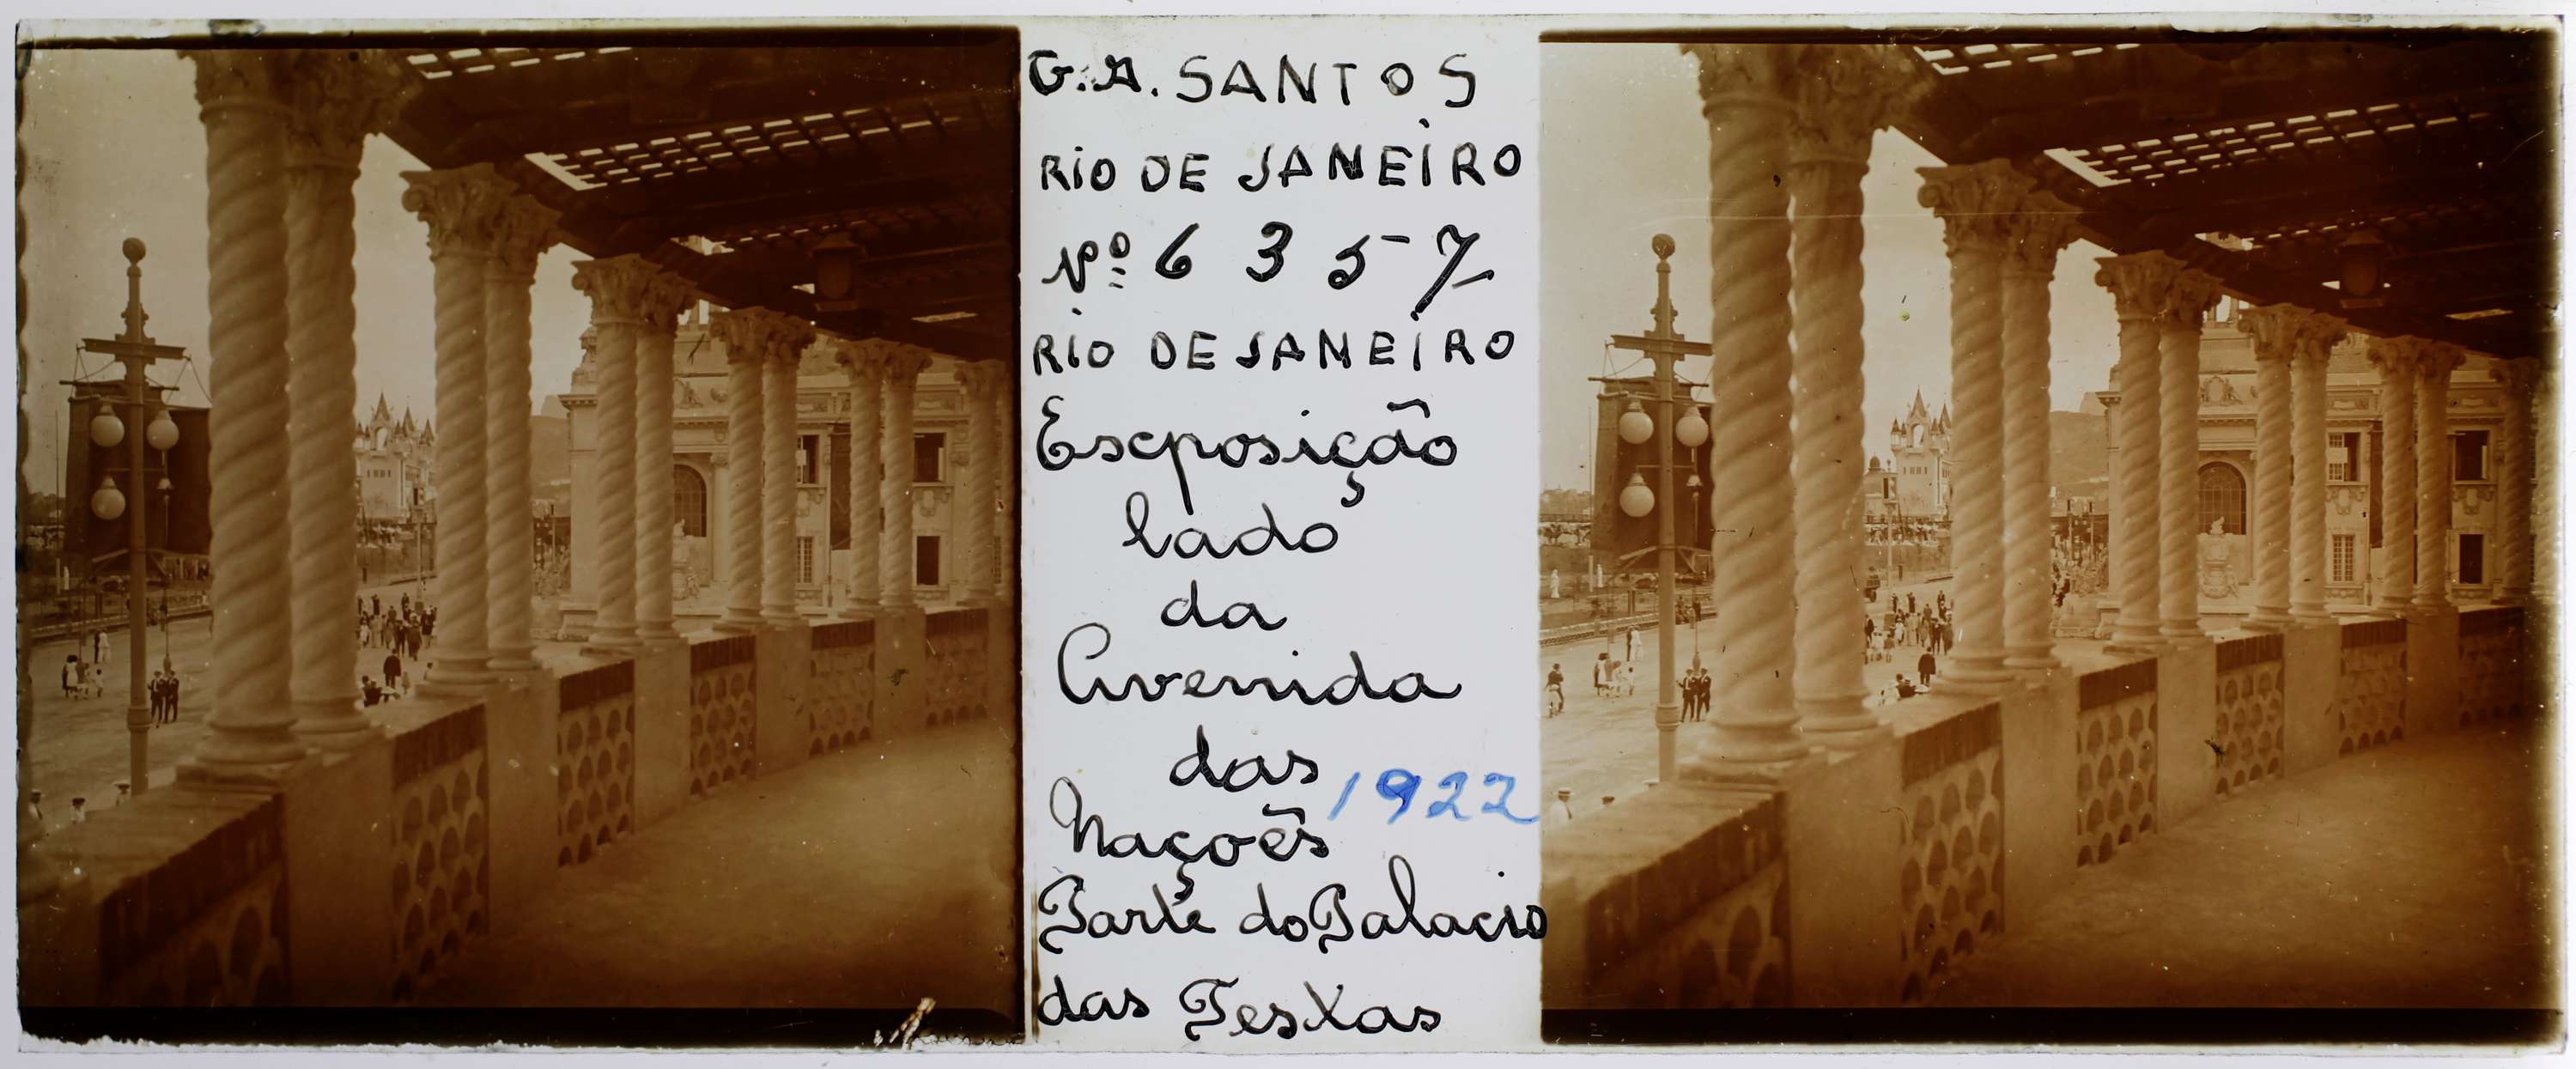 G. A. SANTOS
RIO DE JANEIRO
Nº 6 3 5 7
RIO DE JANEIRO
Exposição
lado
da
Avenida
das
1922
Naçoês
Parte do Palacio
das Festas